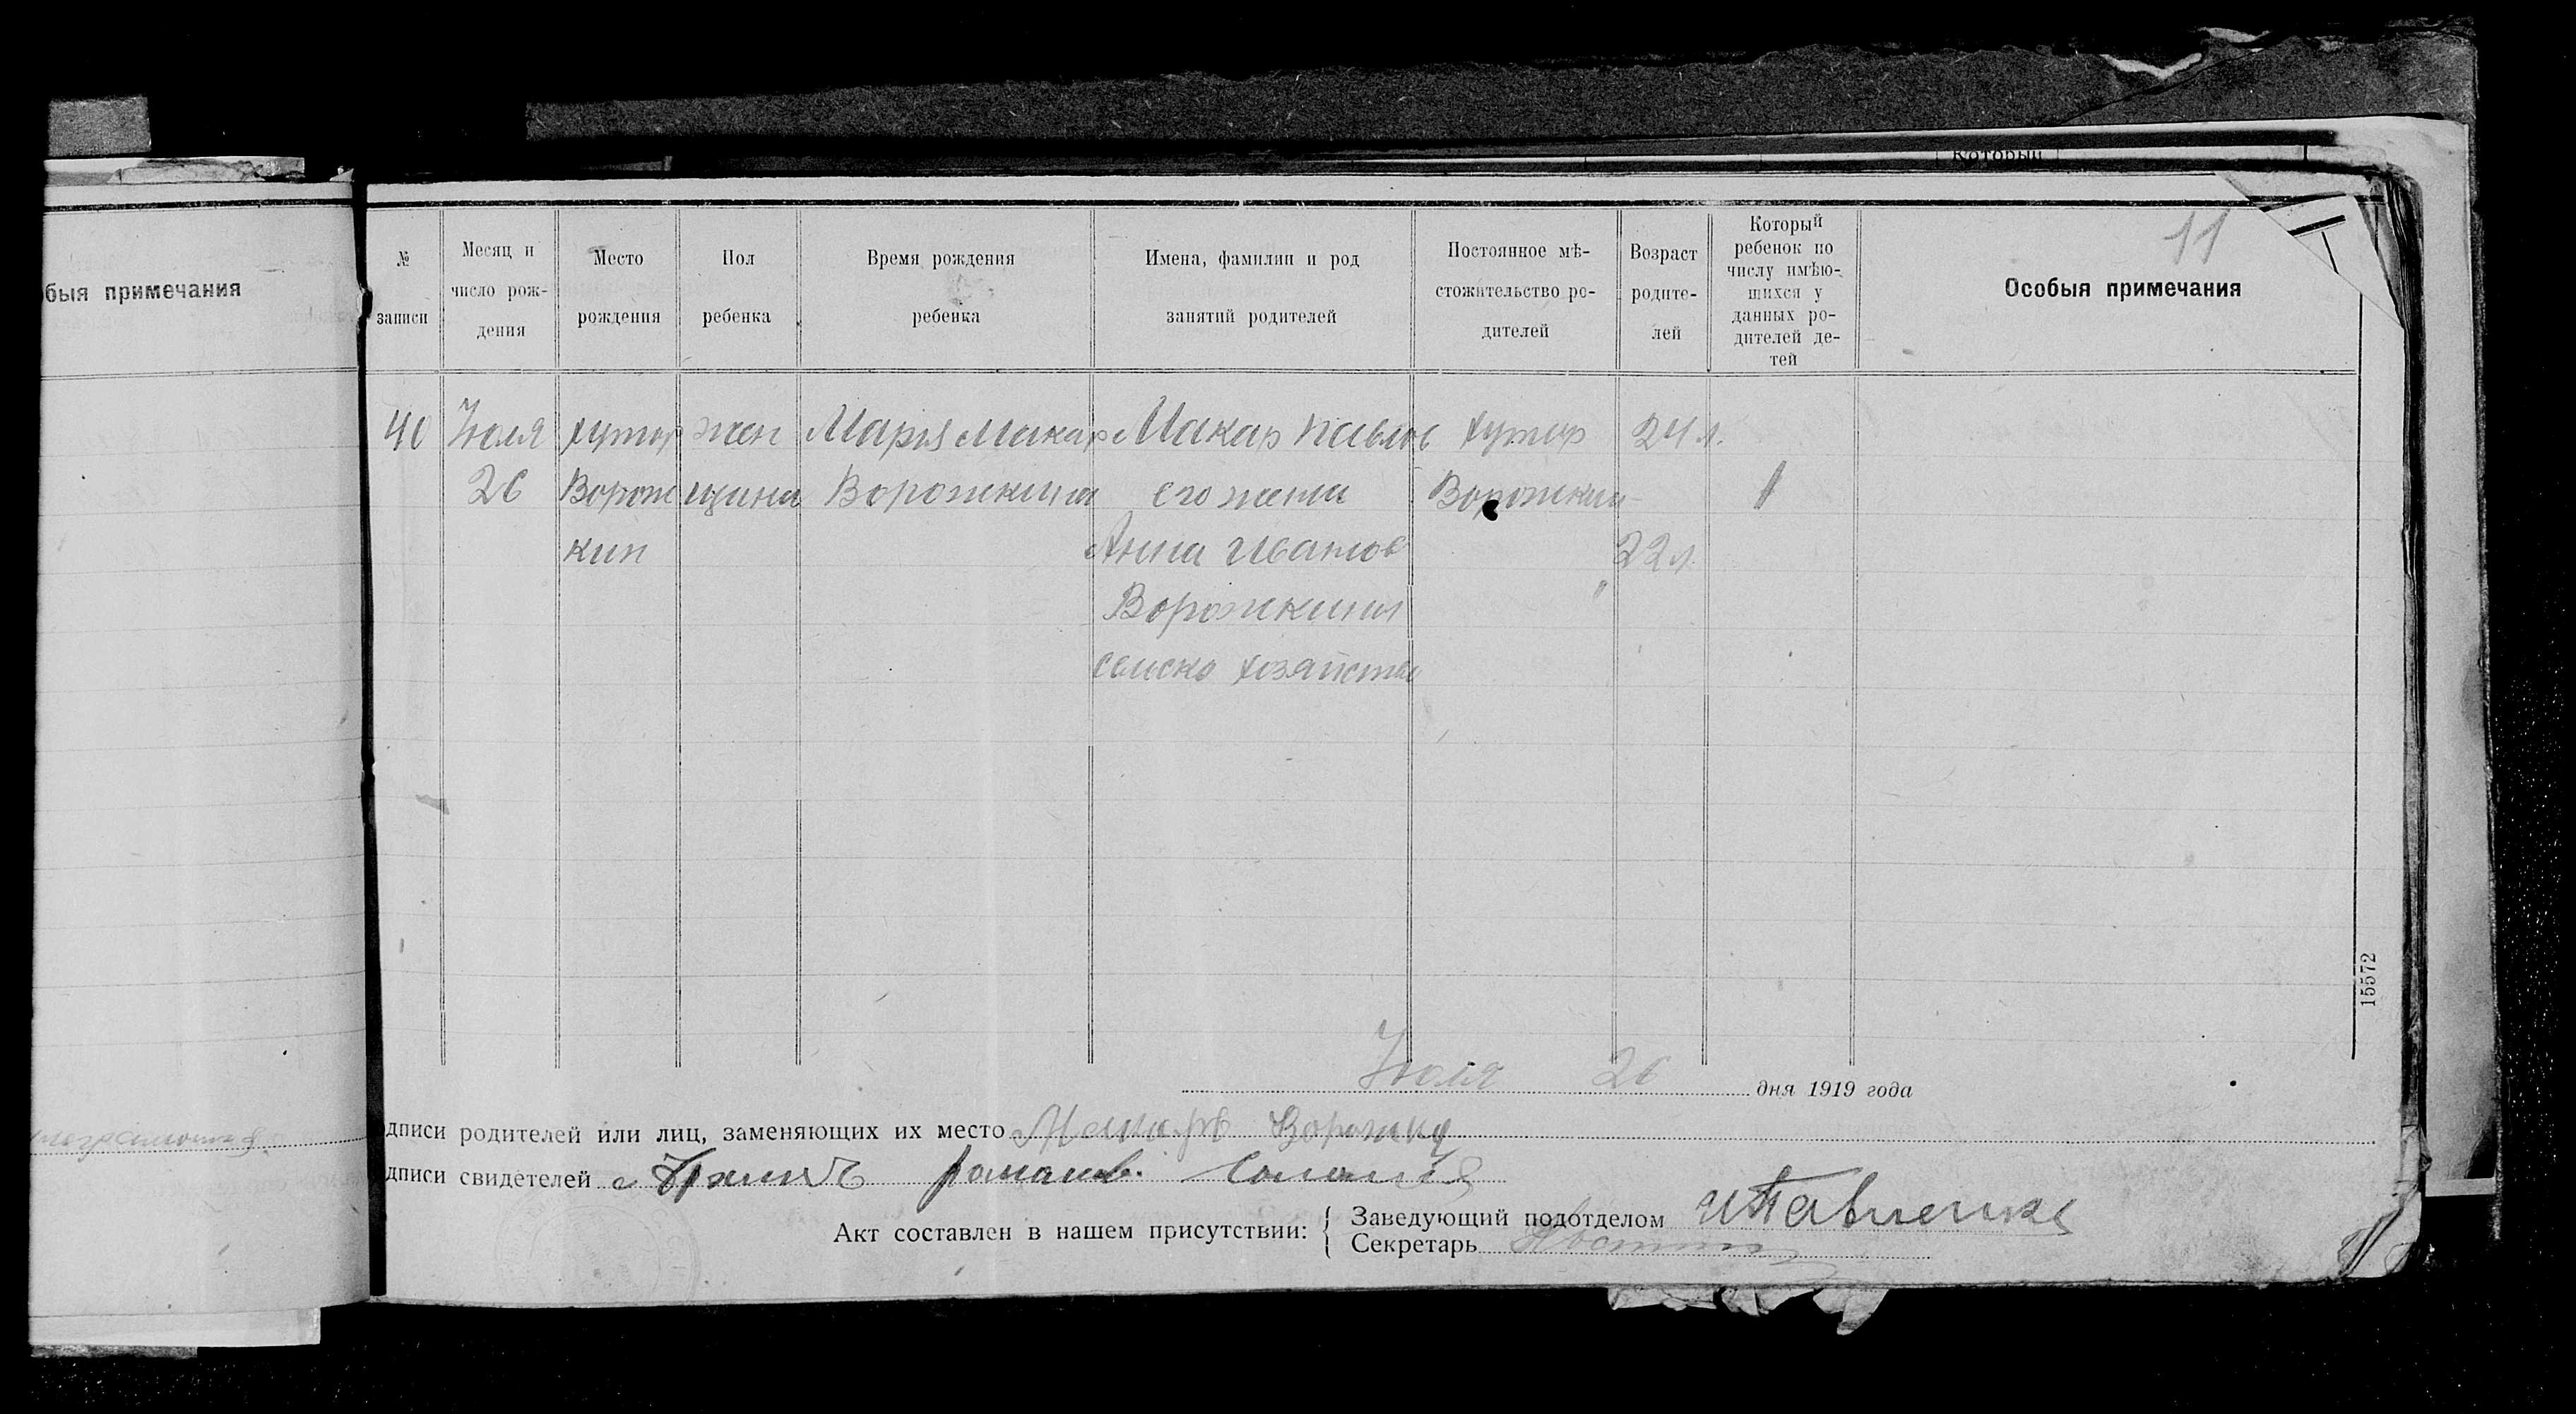 Который
быя примечания
№ записи
Месяц и число рож-дения
Место рождения
Пол ребенка
Время рождения ребенка
Имена, фамилии и род занятий родителей
Постоянное мѣ-стожательство ро-дителей
Возраст родите-лей
Который ребенок по числу имѣю-щихся у данных ро-дителей де-тей
Особыя примечания
11
40
Июля
26
хутор
Ворож
кин
жен
щина
Мария Макар
Ворожкина
Макар Павлов
его жена
Анна Иванов
Ворожкины
сельско хозяйство
хутор
Ворожкин
24 л.
22 л.
1
15572
Июля 26 дня 1919 года
дписи родителей или лиц, заменяющих их место Макаръ
дписи свидетелей
Акт составлен в нашем присутствии:
Заведующий подотделом И Павленко
Секретарь